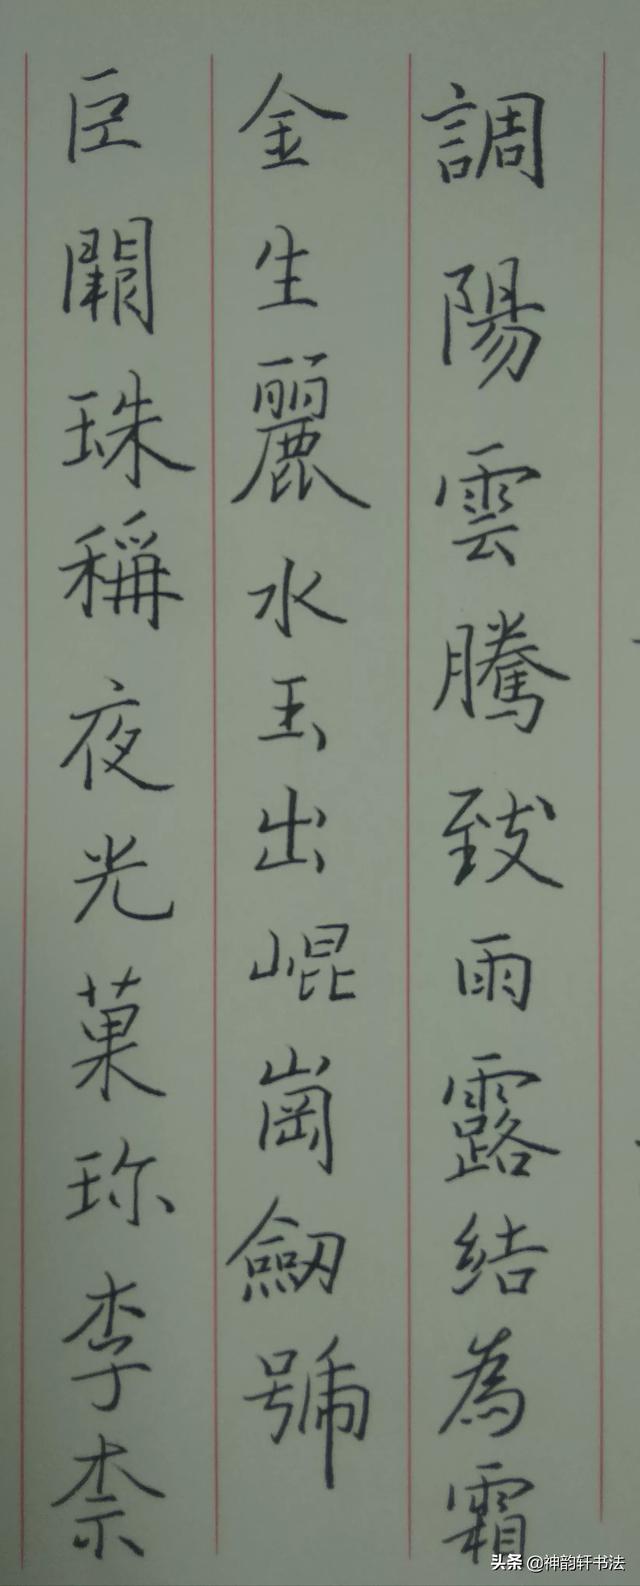 調陽雲騰致雨露結為霜
金生麗水玉出崐崗劒號
巨闕珠稱夜光菓珎李柰
头条 @神韵轩书法